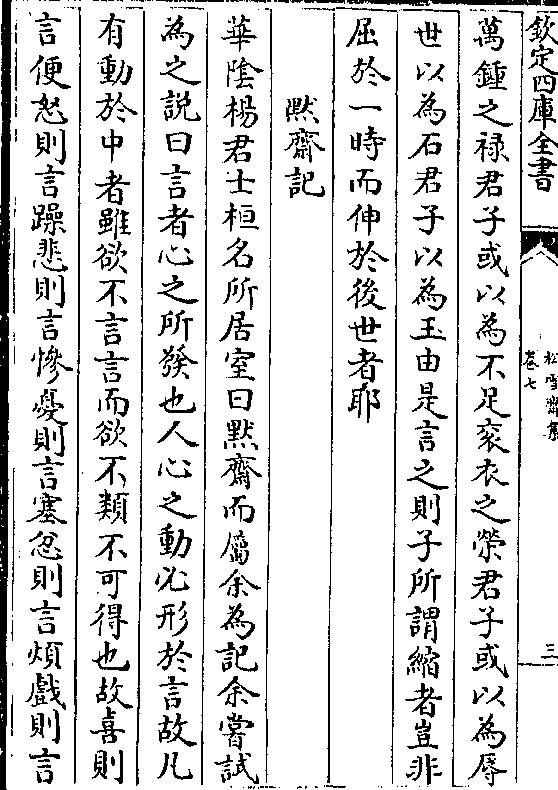 欽定四庫全書
松雪齋集
卷七
三
萬鍾之祿君子或以為不足衮衣之榮君子或以為辱
世以為石君子以為玉由是言之則子所謂縮者豈非
屈於一時而伸於後世者耶
默齋記
華陰楊君士桓名所居室曰默齋而屬余為記余嘗試
為之説曰言者心之所發也人心之動必形於言故凡
有動於中者雖欲不言言而欲不類不可得也故喜則
言便恕則言躁悲則言慘憂則言塞忽則言煩戲則言